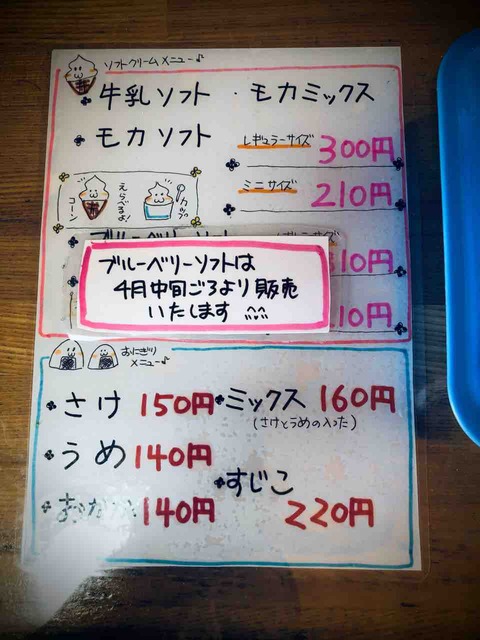 ソフトクリームメニュー♪
牛乳ソフト ・モカミックス
モカソフト
レギュラーサイズ 300円
ミニサイズ 210円
コーン
えらべるよ!
カップ
ブルーベリーソフトは
4月中旬ごろより販売
いたします
10円
10円
おにぎりメニュー♪
さけ 150円
ミックス 160円
(さけとうめの入った)
うめ 140円
すじこ
220円
140円